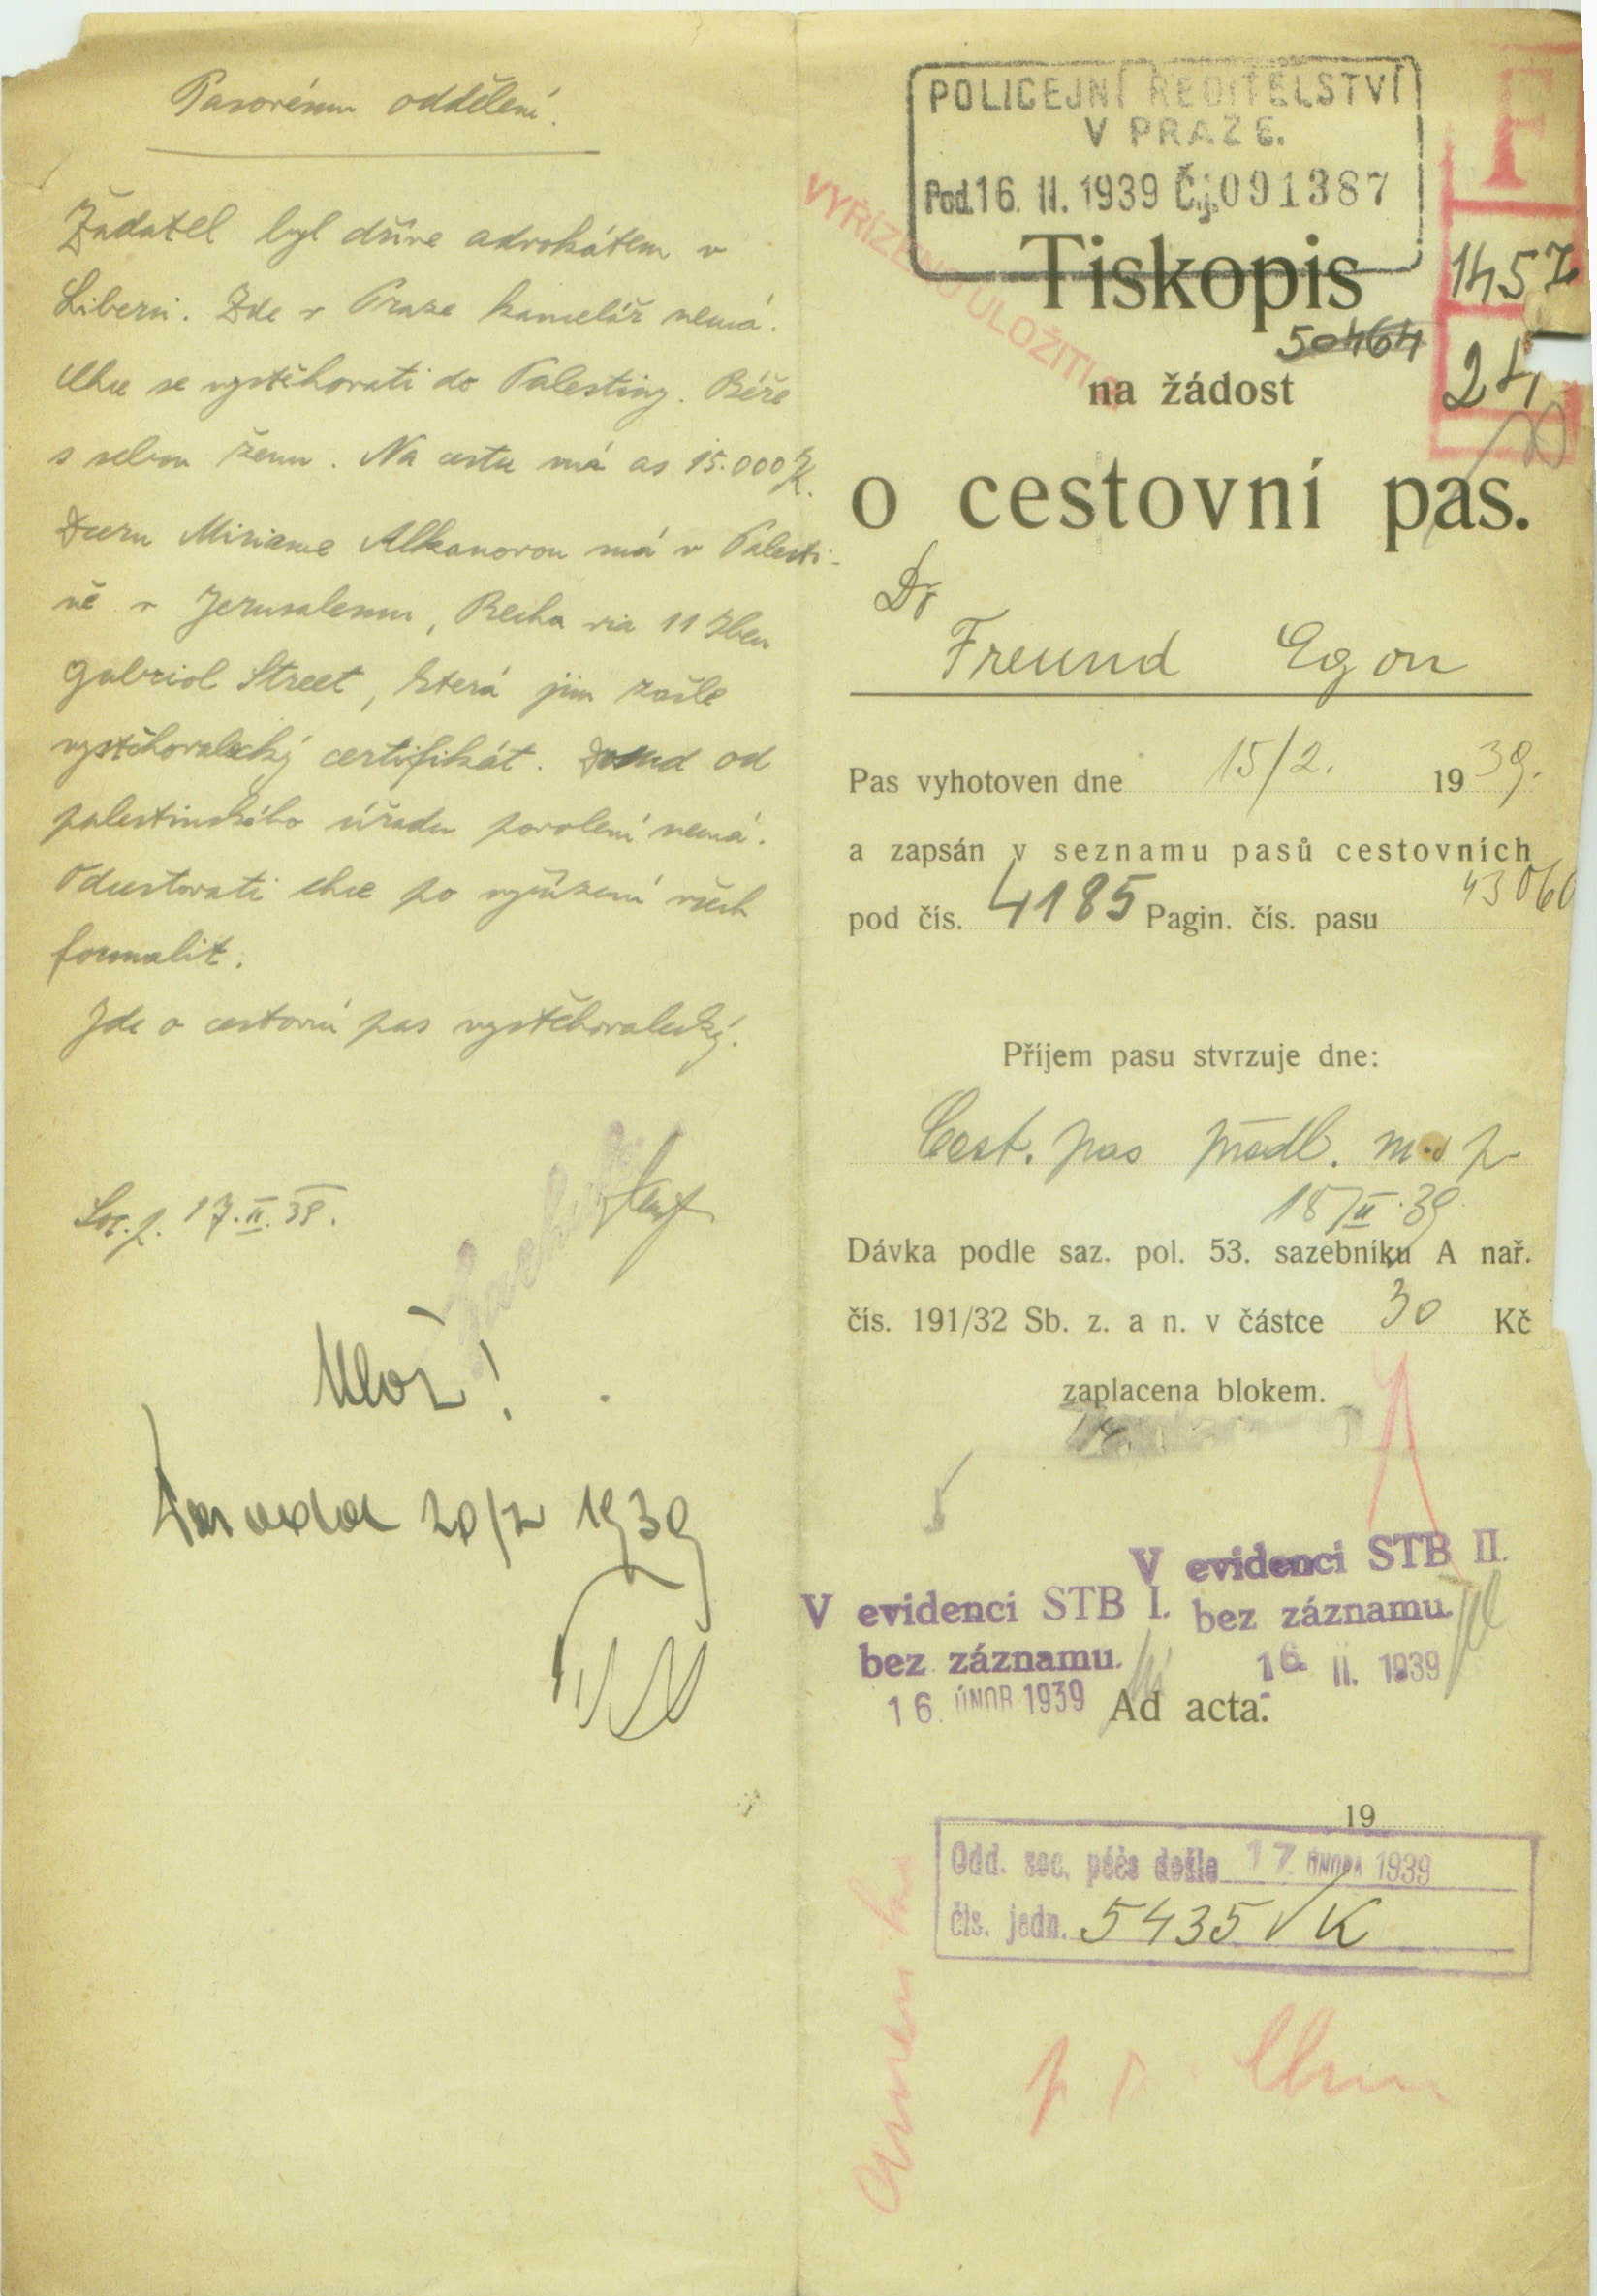 Pasovému oddělení.
Žadatel byl dříve advokátem v
Liberci. Zde v Praze kancelář nemá.
Chce se vystěhovati do Palestiny. Béře
s sebou ženu. Na cestu má as 15.000 K.
Dceru Miriame Alkanovou má v Palesti-
ně v Jerusalemu, Recha via 11 Iben
Gabriol Street, která jim zašle
vystěhovalecký certifikát. Dosud od
palestinského úřadu povolení nemá.
Odcestovati chce po vyřízení všech
formalit.
Jde o cestovní pas vystěhovalecký.
Soc. p. 17.II.39.
Ulož!
20/2 1939
POLICEJNÍ ŘEDITELSTVÍ
V PRAZE.
Pod. 16. II. 1939 Č.j. 091387
VYŘÍZENO ULOŽITI
F
1457
24
Tiskopis
50464
na žádost
o cestovní pas.
Dr
Freund Egon
Pas vyhotoven dne 15/2. 1939.
a zapsán v seznamu pasů cestovních
pod čís. 4185 Pagin. čís. pasu 43060
Příjem pasu stvrzuje dne:
Cest. pas
18/II.39
Dávka podle saz. pol. 53. sazebníku A nař.
čís. 191/32 Sb. z. a n. v částce 30 Kč
zaplacena blokem.
V evidenci STB II.
bez záznamu.
16. II. 1939
V evidenci STB I.
bez záznamu.
16. ÚNOR 1939
Ad acta.
19
Odd. soc. péče došlo 17. ÚNORA 1939
čís. jedn. 5435 / K